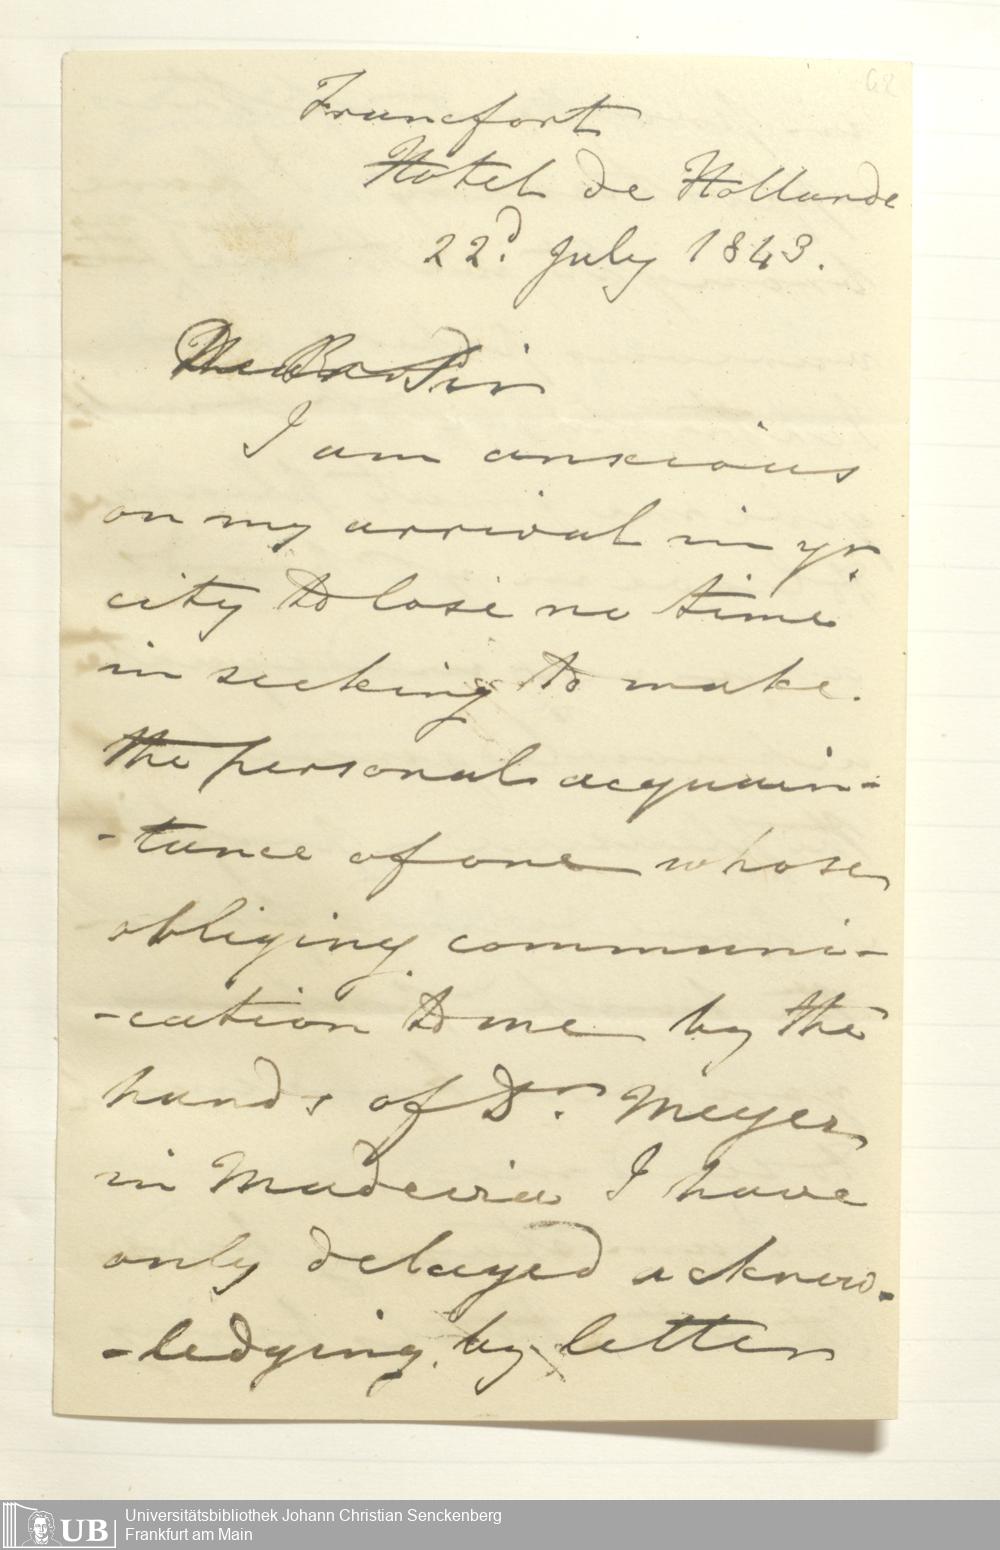 62
Francfort
Hotel de Hollande
22d. July 1843.
Dear Sir
I am anxious
on my arrival in yr.
city to lose no time
in seeking to make
the personal acquain-
-tance of one whose
obliging communi-
-cation to me by the
hands of Dr. Meyer
in Madeira I have
only delayed acknow-
-ledging by letter
UB
Universitätsbibliothek Johann Christian Senckenberg
Frankfurt am Main